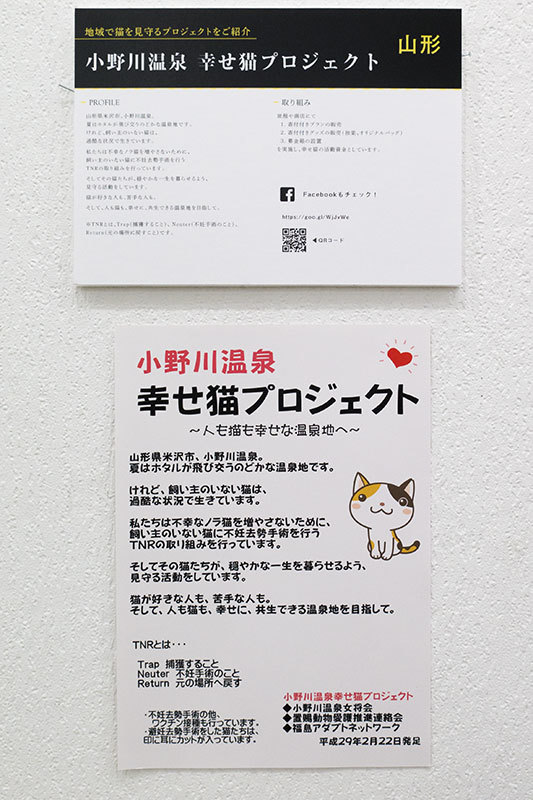 地域で猫を見守るプロジェクトをご紹介
小野川温泉 幸せ猫プロジェクト
山形
PROFILE
山形県米沢市、小野川温泉。
夏はホタルが飛び交うのどかな温泉地です。
けれど、飼い主のいない猫は、
過酷な状況で生きています。
私たちは不幸なノラ猫を増やさないために、
飼い主のいない猫に不妊去勢手術を行う
TNRの取り組みを行っています。
そしてその猫たちが、穏やかな一生を暮らせるよう、
見守る活動をしています。
猫が好きな人も、苦手な人も。
そして、人も猫も、幸せに、共生できる温泉地を目指して。
※TNRとは、Trap(捕獲すること)、Neuter(不妊手術のこと)、
Return(元の場所に戻すこと)です。
取り組み
旅館や商店にて
1. 寄付付きプランの販売
2. 寄付付きグッズの販売(抱葉、オリジナルバッグ)
3. 募金箱の設置
を実施し、幸せ猫の活動資金としています。
Facebookもチェック!
https://goo.gl/WjJvWc
◀QRコード
小野川温泉
幸せ猫プロジェクト
～人も猫も幸せな温泉地へ～
山形県米沢市、小野川温泉。
夏はホタルが飛び交うのどかな温泉地です。
けれど、飼い主のいない猫は、
過酷な状況で生きています。
私たちは不幸なノラ猫を増やさないために、
飼い主のいない猫に不妊去勢手術を行う
TNRの取り組みを行っています。
そしてその猫たちが、穏やかな一生を暮らせるよう、
見守る活動をしています。
猫が好きな人も、苦手な人も。
そして、人も猫も、幸せに、共生できる温泉地を目指して。
TNRとは・・・
Trap 捕獲すること
Neuter 不妊手術のこと
Return 元の場所へ戻す
・不妊去勢手術の他、
ワクチン接種も行っています。
・避妊去勢手術をした猫たちは、
印に耳にカットが入っています。
小野川温泉幸せ猫プロジェクト
◆小野川温泉女将会
◆置賜動物愛護推進連絡会
◆福島アダプトネットワーク
平成29年2月22日発足